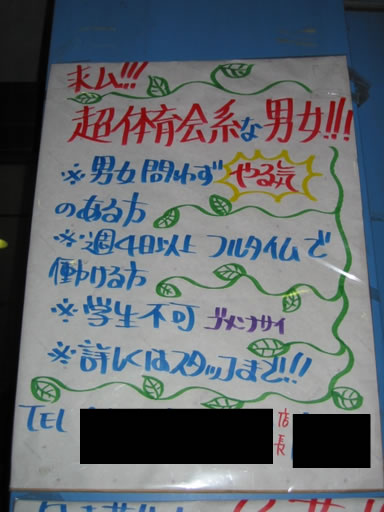 求ム!!!
超体育会系な男女!!!
※男女問わず やる気
のある方
※週4日以上 フルタイムで
働ける方
※学生不可 ゴメンナサイ
※詳しくはスタッフまで!!
TEL
店長